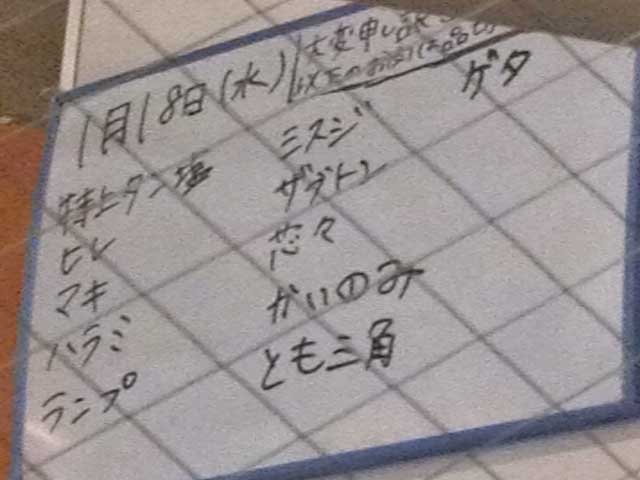 1月18日(水)
大変申し訳
以下のお肉は品切
特上タン塩
ヒレ
マキ
ハラミ
ランプ
ミスジ
ザブトン
芯々
かいのみ
とも三角
ゲタ